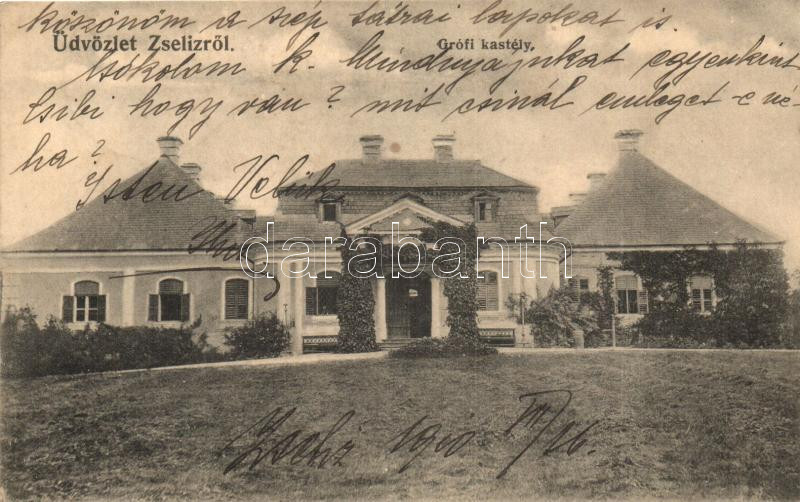 Köszönöm a szép tátrai lapokat is.
Üdvözlet Zselizről.
Grófi kastély.
Csókolom k. Mindnyájukat egyenkint
Csibi hogy van? mit csinál emleget-e né-
ha?
Isten Velük
darabanth.com
1910 VII/26.